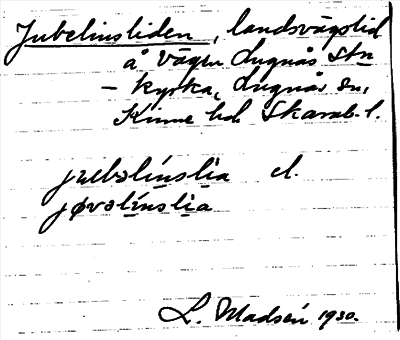 Jubelinsliden, landsvägslid
å vägen Lugnås stn
- kyrka, Lugnås sn,
Kinne hd Skarab. l.
jubəlínslia el.
jøvəlínslia
L. Madsén 1930.